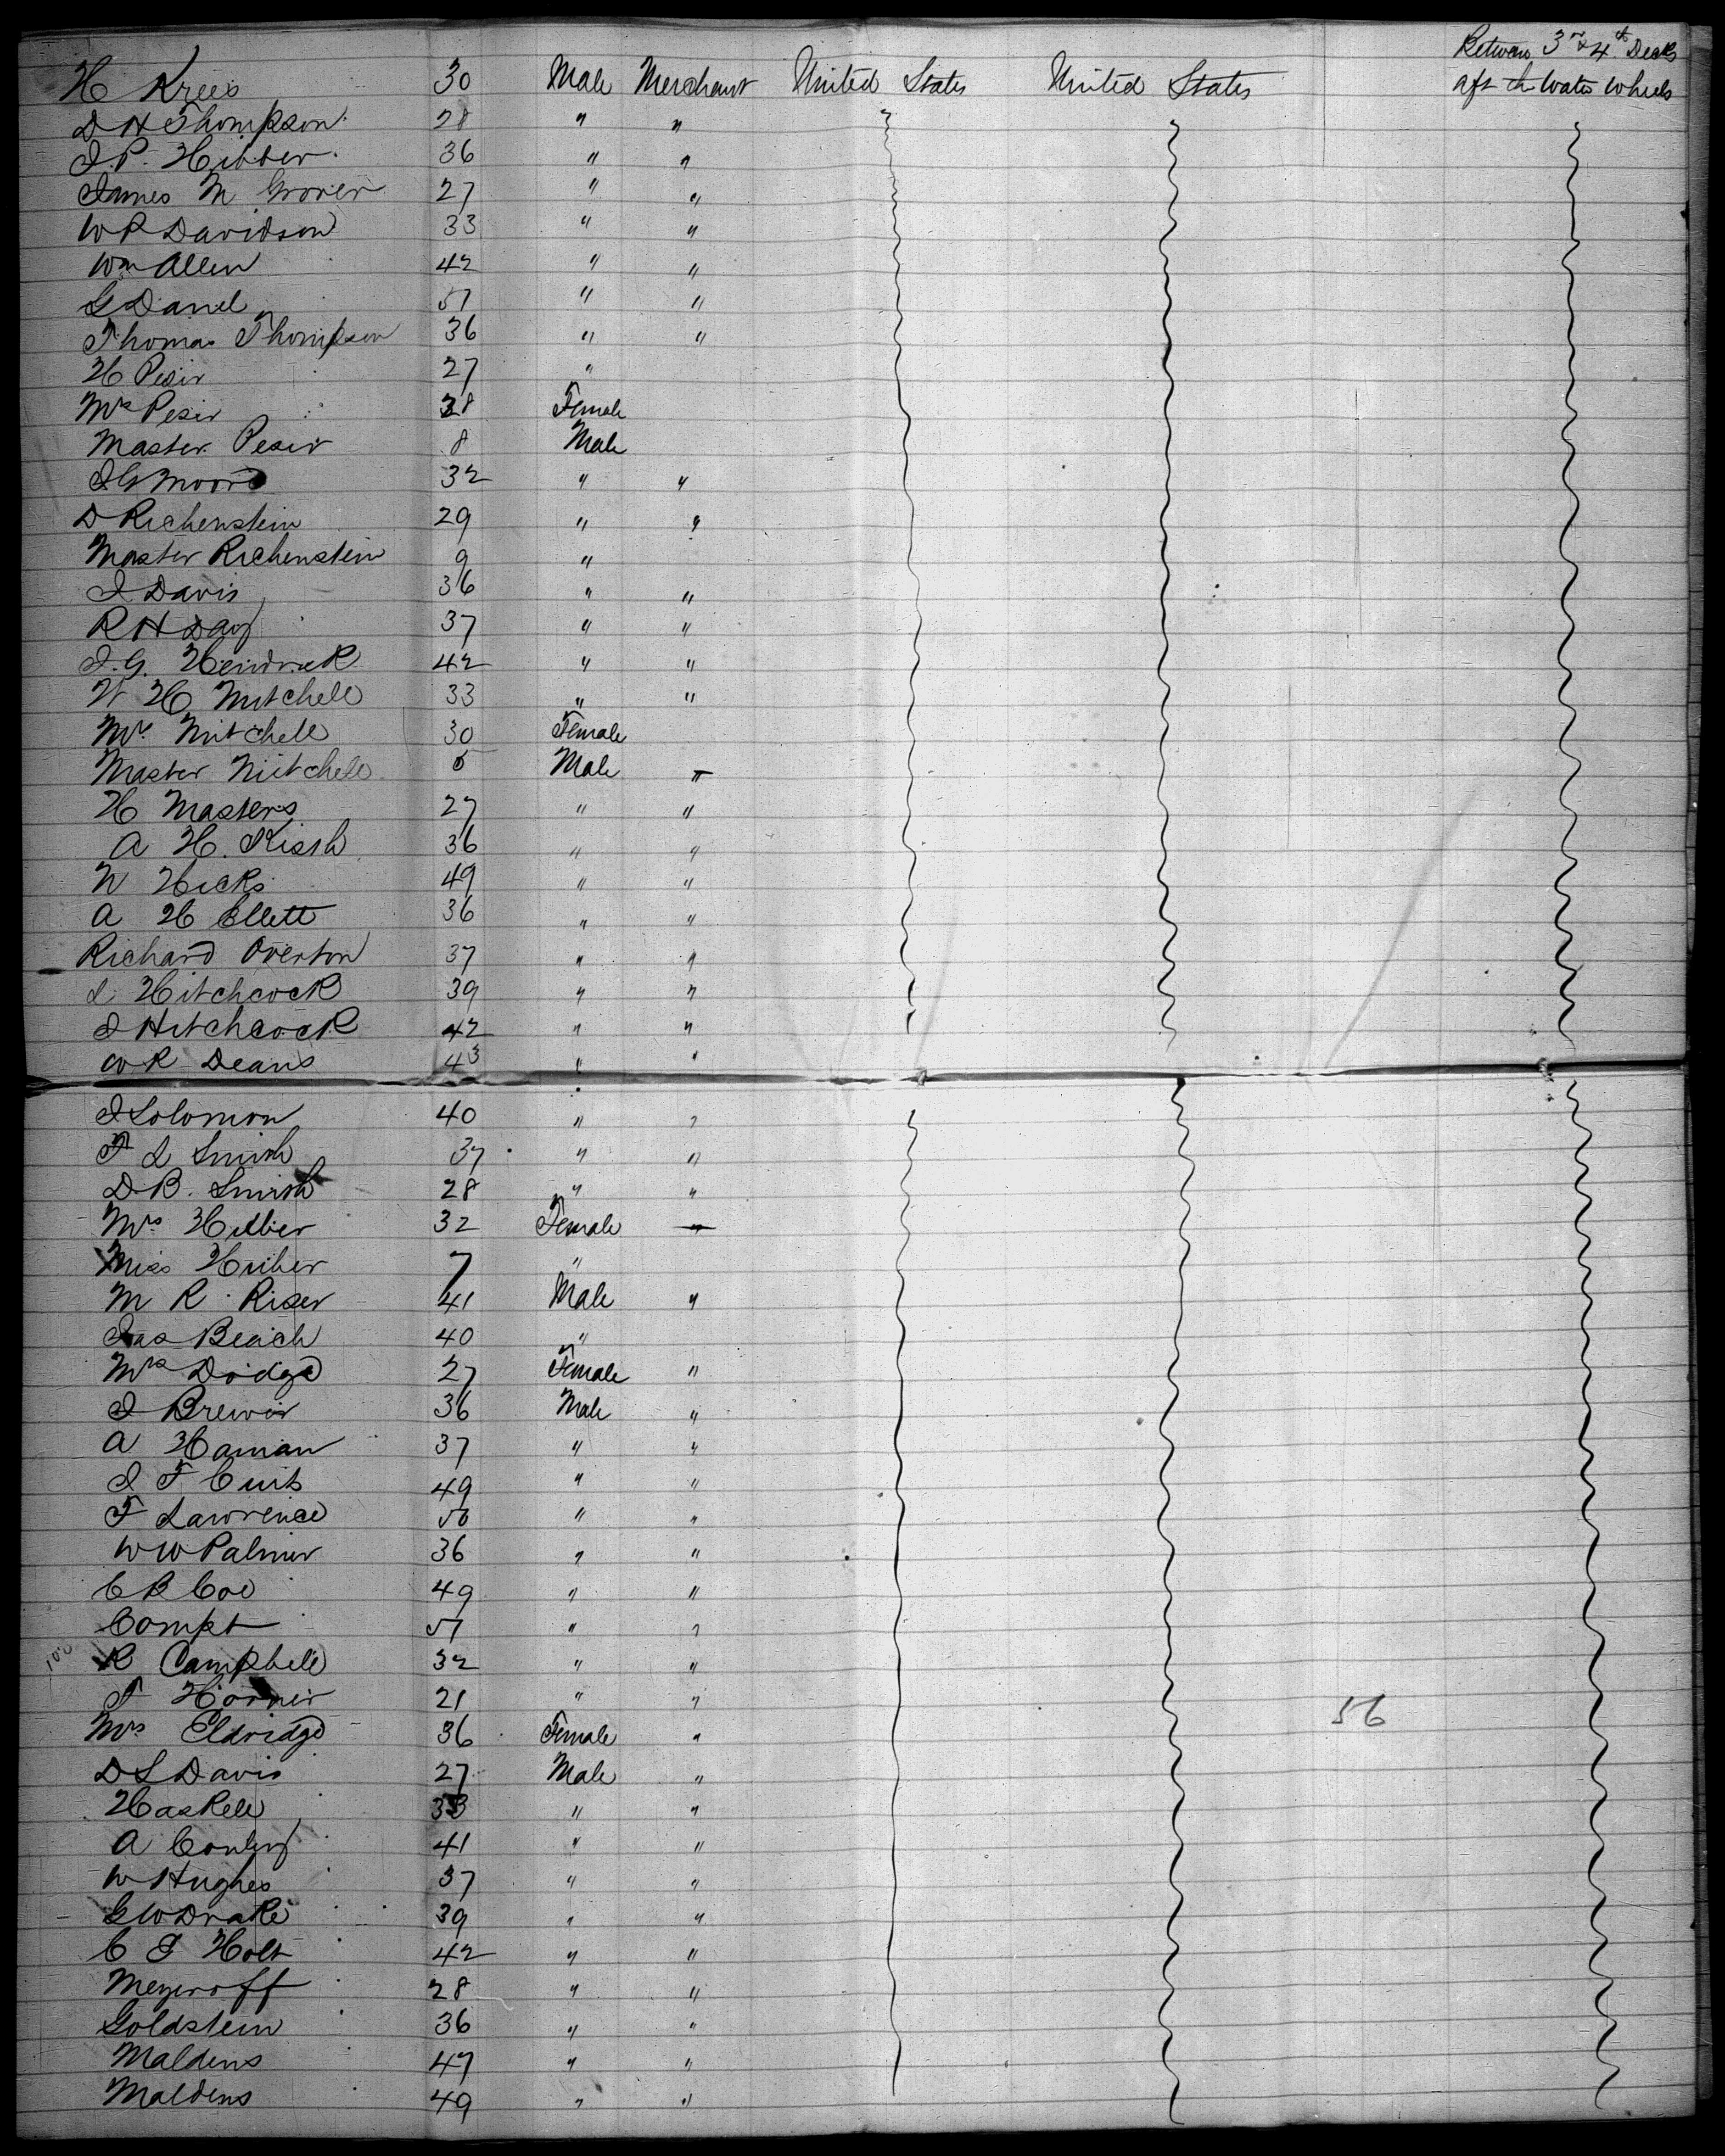 Between 3rd & 4th Decks
H Krees 30 Male Merchant United States United States aft the Water Wheels
D H Thompson 28 " "
J. P. Hibber 36 " "
James M Grover 27 " "
W R Davidson 33 " "
Wm Allen 42 " "
G Daniel 51 " "
Thomas Thompson 36 " "
H Pesir 27 "
Mrs Pesir 28 Female
Master Pesir 8 Male
J G Moore 32 " "
D Richenstein 29 " "
Master Richenstein 9 "
J Davis 36 " "
R H Day 37 " "
J. G. Hendrick 42 " "
W H Mitchell 33 " "
Mrs Mitchell 30 Female
Master Mitchell 5 Male
H Masters 27 " "
A H. 36 " "
W Hicks 49 " "
A H Ellett 36 " "
Richard Overton 37 " "
L Hitchcock 39 " "
J Hitchcock 42 " "
W R Deans 43 " "
J Solomon 40 " "
F L Smith 37 " "
D. B. Smith 28 " "
Mrs Hilbier 32 Female
Miss 7 "
M R Riser 41 Male "
Jas Beach 40 "
Mrs Dodge 27 Female "
J Brewer 36 Male "
A Haman 37 " "
J F 49 " "
F Lawrence 50 " "
W W Palmer 36 " "
C B Coe 49 " "
Compt 51 " "
100 R Campbell 32 " "
F Horner 21 " "
56
Mrs Eldridge 36 Female "
D L Davis 27 Male "
Haskell 33 " "
A Conley 41 " "
W Hughes 37 " "
G W Drake 39 " "
C J Holt 42 " "
Meyeroff 28 " "
Goldstein 36 " "
Maldens 47 " "
Maldens 49 " "